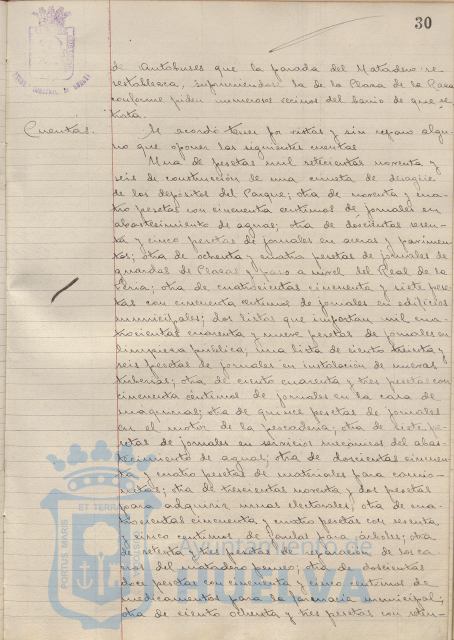 30
de Autobuses que la parada del Matadero se
restablezca, suprimiendose la de la Plaza de la Paz
conforme piden numerosos vecinos del barrio de que se
trata.
Cuentas.
Se acordó tener por vistas y sin reparo algu-
no que oponer las siguientes cuentas
Una de pesetas mil setecientas noventa y
seis de construcción de una cuneta de desagüe
de los depositos del Parque; otra de noventa y cua-
tro pesetas con cincuenta centimos de jornales en
abastecimiento de aguas; otra de doscientas sesen-
ta y cinco pesetas de jornales en aceras y pavimen-
tos; otra de ochenta y cuatro pesetas de jornales de
guardas de Plazas y paso a nivel del Real de la
Feria; otra de cuatrocientas cincuenta y siete pese-
tas con cincuenta centimos de jornales en edificios
municipales; dos listas que importan mil cua-
trocientas cuarenta y nueve pesetas de jornales en
limpieza publica; una lista de ciento treinta y
seis pesetas de jornales en instalación de nuevas
tuberias; otra de ciento cuarenta y tres pesetas con
cincuenta céntimos de jornales en la casa de
maquinas; otra de quince pesetas de jornales
en el motor de la pescaderia; otra de siete pe-
setas de jornales en servicios mecanicos del abas-
tecimiento de aguas; otra de doscientas cincuen-
ta y cuatro pesetas de materiales para camio-
netas; otra de trescientas noventa y dos pesetas
para adquirir urnas electorales; otra de cua-
trocientas cincuenta y cuatro pesetas con sesenta
y cinco centimos de jaulas para arboles; otra
de setenta y tres pesetas de
del matadero; otra de doscientas
doce pesetas con cincuenta y cinco centimos de
medicamentos para la farmacia municipal;
otra de ciento ochenta y tres pesetas con vein-
ET TERRA
PORTUS MARIS
Ayuntamiento de
HUELVA